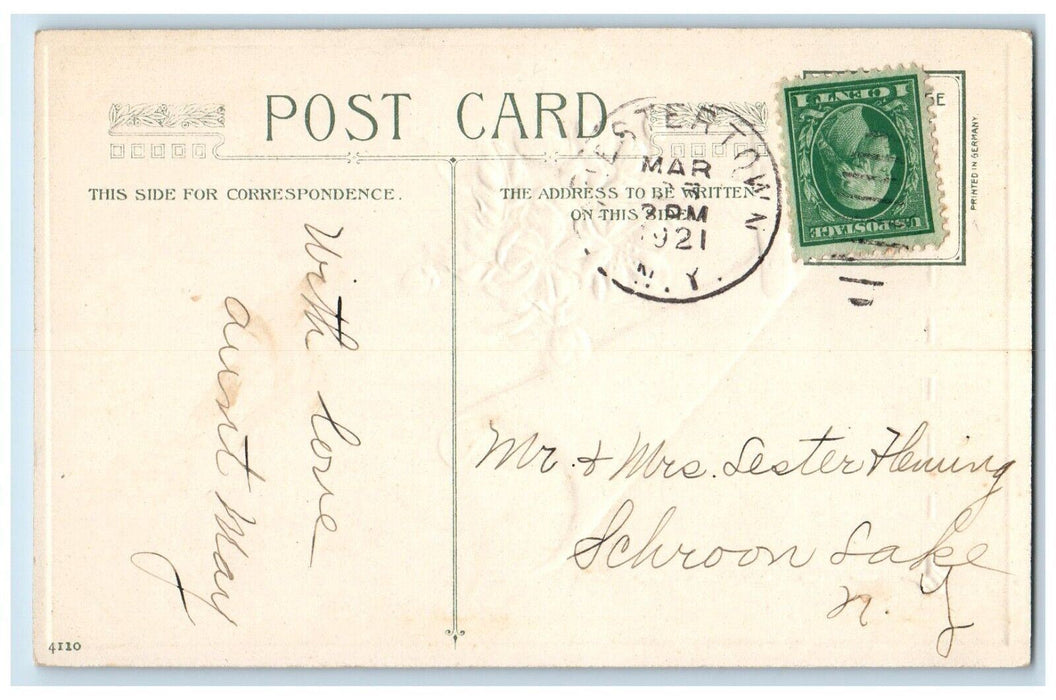 POST CARD
THIS SIDE FOR CORRESPONDENCE.
THE ADDRESS TO BE WRITTEN
ON THIS SIDE.
ESTERTOWN
MAR
3 PM
1921
N.Y.
1 CENT 1
U.S. POSTAGE
PRINTED IN GERMANY
With love
Aunt May
Mr. & Mrs. Lester Fleming
Schroon Lake
N. Y
4110